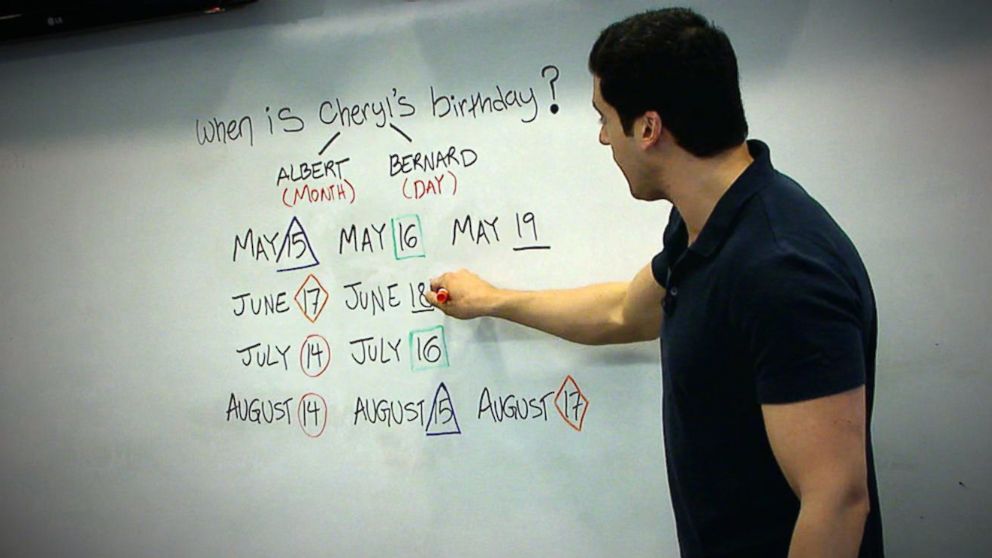 LG
when is Cheryl's birthday?
ALBERT BERNARD
(MONTH) (DAY)
MAY 15 MAY 16 MAY 19
JUNE 17 JUNE 18
JULY 14 JULY 16
AUGUST 14 AUGUST 15 AUGUST 17